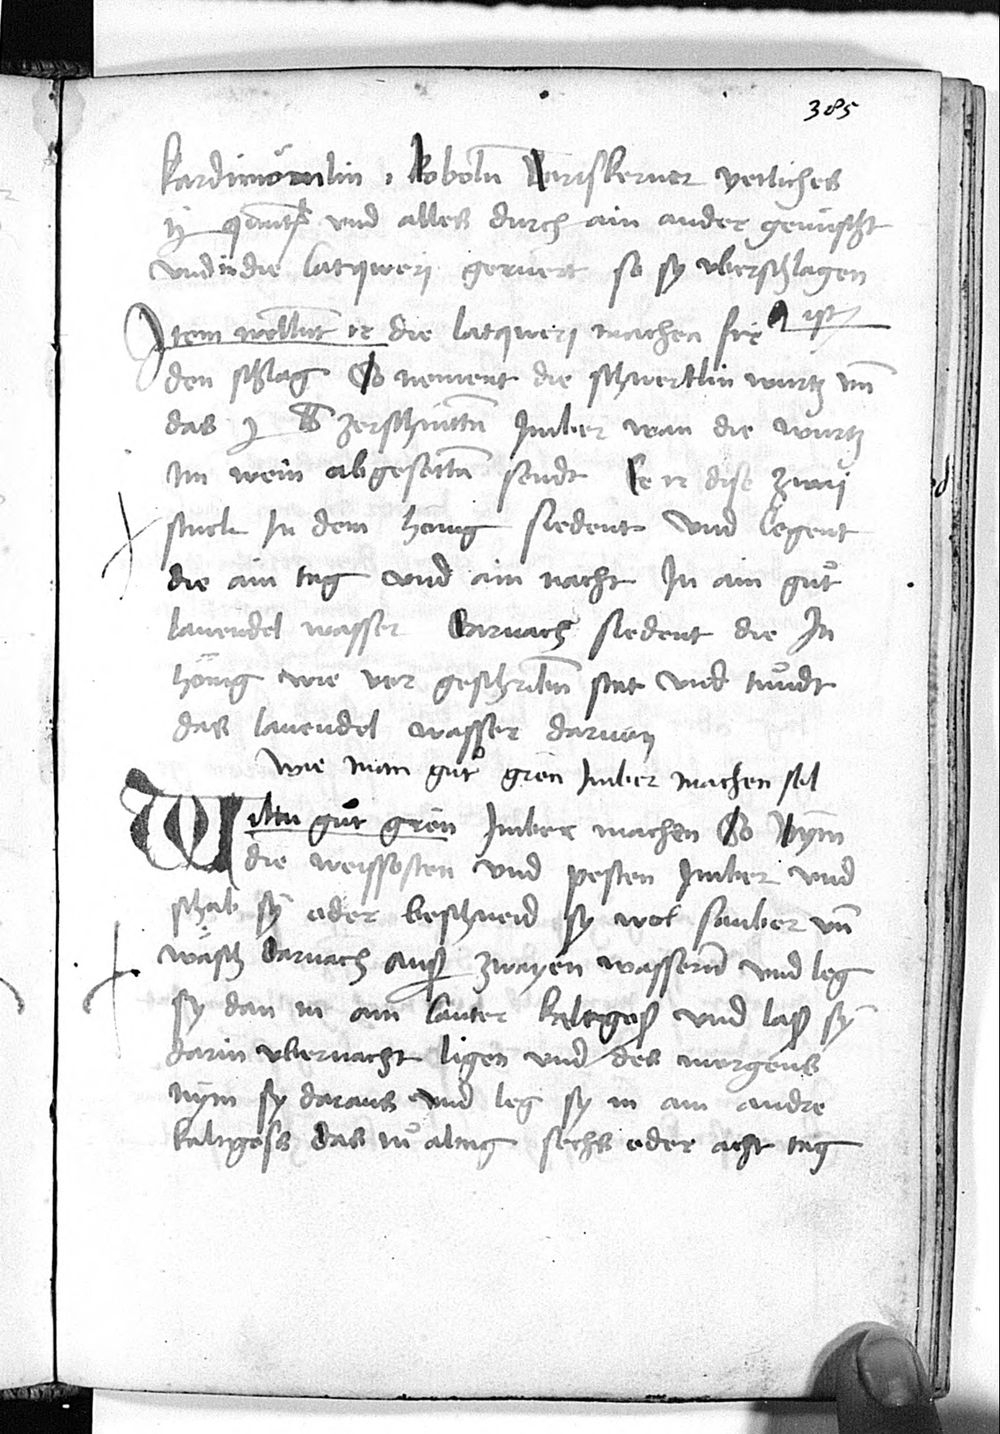 385
kardimömlin, kobolin pariskerner yetliches
ij quintt und alles durch ain ander gemischt
und in die latqweri gerüert so sy uberschlagen
ist
Item wellent ir die latqweri machen für
den schlag So nement die schwertlin wurtz vnd
das j lb zerschnitten Imber wan die wurtz
Im wein abgesotten sendt Ee ir dise zwaj
stuck In dem honig siedent Und Legent
die ain tag und ain nacht In ain gůt
lauendel wasser Darnach siedent die In
hönig wie vor geschriben stat und tůndt
das lauendel wasser daruon
Wie man gůt grön Imber machen sol
Wiltu gůt grön Imber machen So Nym
die weissosten und pesten Imber und
schab sy oder beschneid sy wol sauber vnd
wäsch darnach auß zwayen wassern und leg
sy dan in ain lauter kaltgoß und laß sy
darin ubernacht ligen und des morgens
nÿm sy daraus und leg sy in ain andre
kaltgoss das tů altag sechs oder acht tag